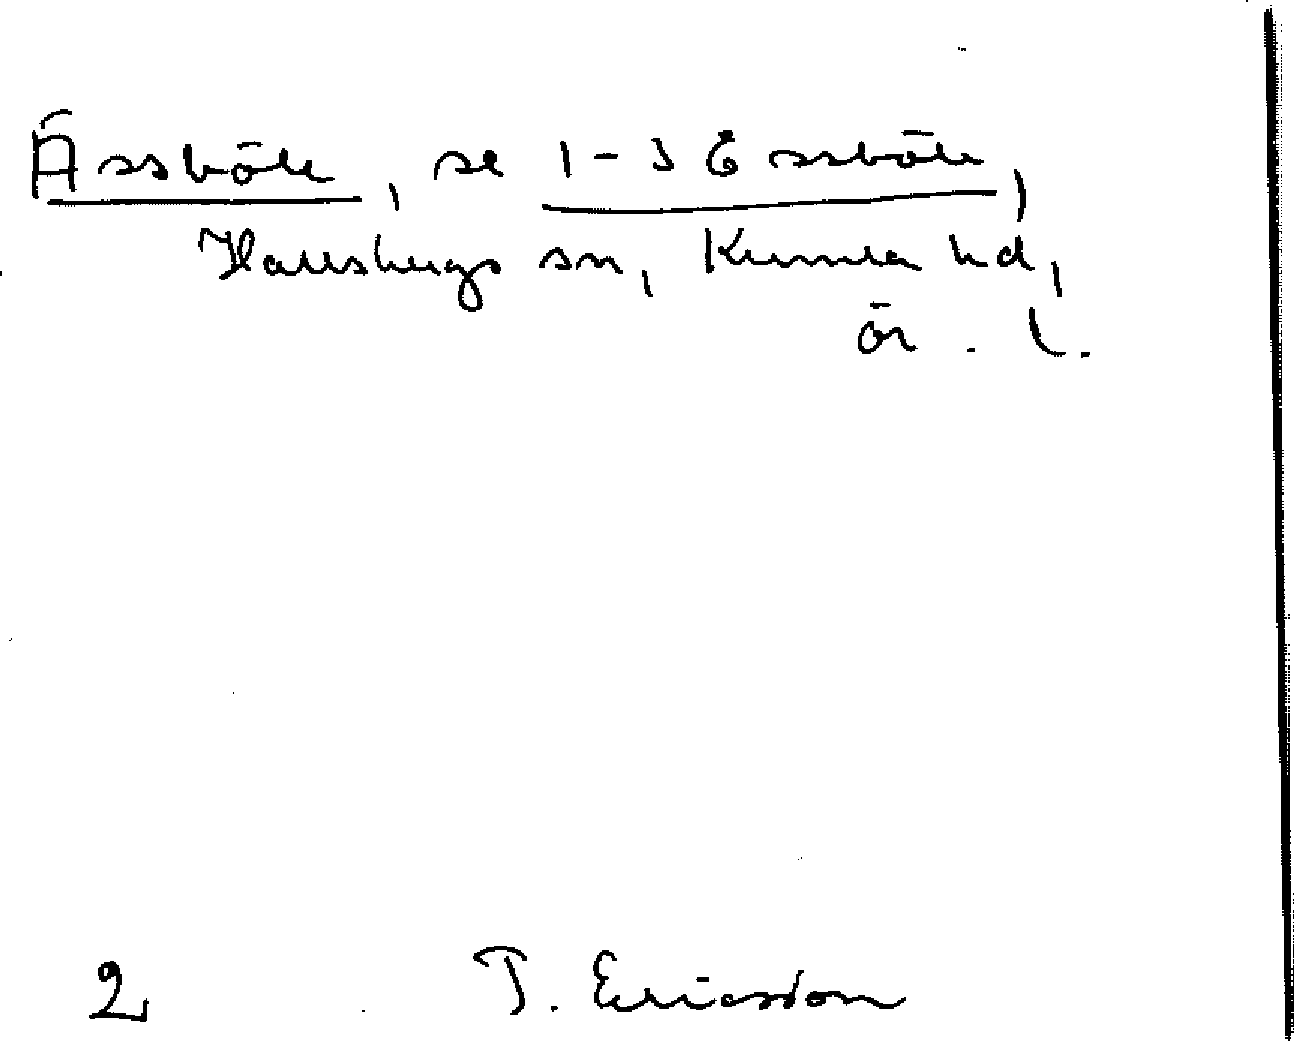 Ässböle, se 1-3 Essböle,
Hallsbergs sn, Kumla hd,
ör. l.
2 T. Ericsson